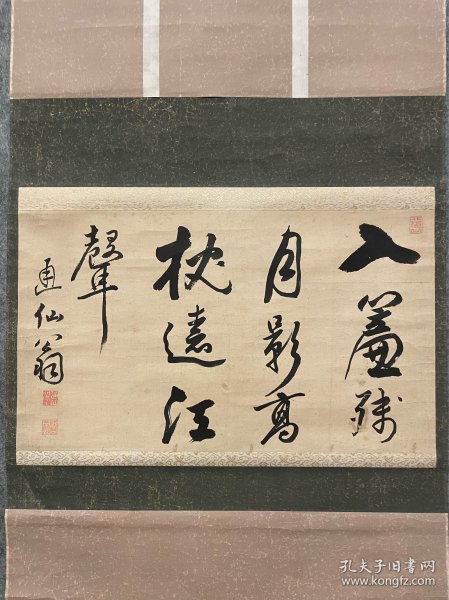 入簾残
月影高
枕遠江
聲
仙翁
孔夫子旧书网
www.kongfz.com